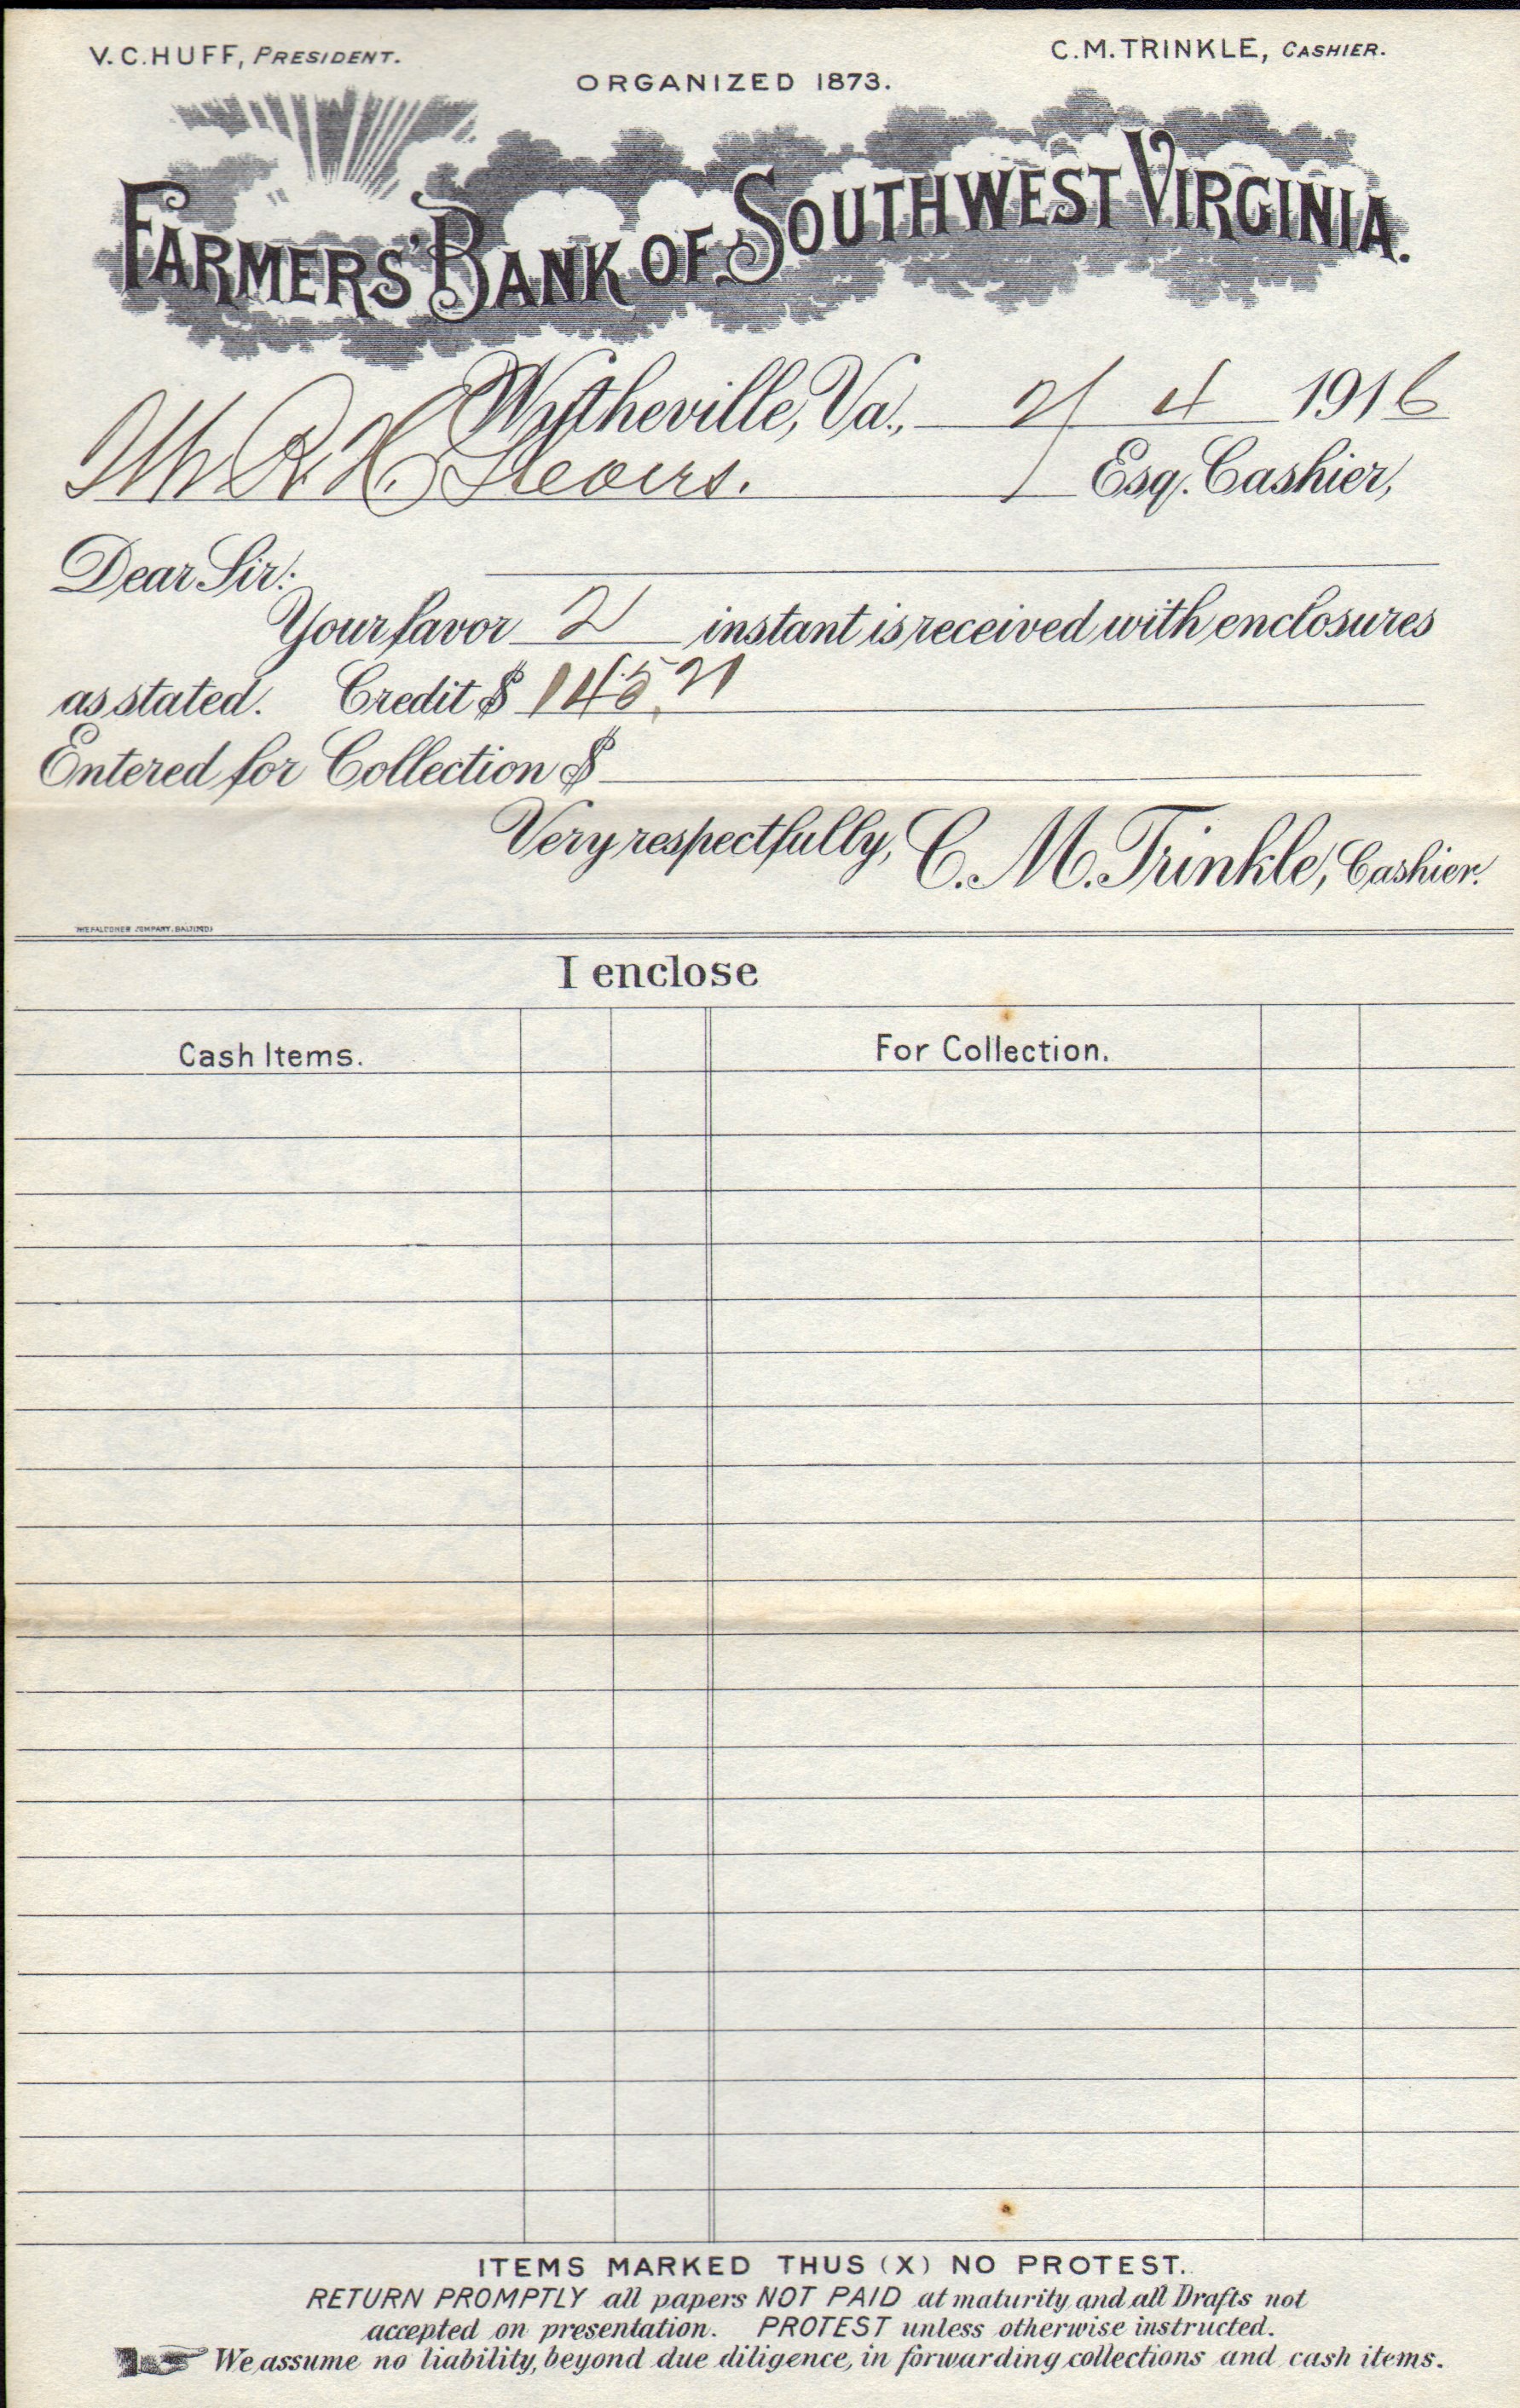 V.C. HUFF, PRESIDENT.
C.M. TRINKLE, CASHIER.
ORGANIZED 1873.
FARMERS' BANK OF SOUTHWEST VIRGINIA.
Wytheville, Va., 2/4 1916
Mr R. H. Esq. Cashier,
Dear Sir:
Your favor 2 instant is received with enclosures
as stated. Credit $ 145.21
Entered for Collection $
Very respectfully, C. M. Trinkle, Cashier.
THE FALCONER COMPANY, BALTIMORE
I enclose
Cash Items. For Collection.
ITEMS MARKED THUS (X) NO PROTEST.
RETURN PROMPTLY all papers NOT PAID at maturity and all Drafts not
accepted on presentation. PROTEST unless otherwise instructed.
We assume no liability, beyond due diligence, in forwarding collections and cash items.